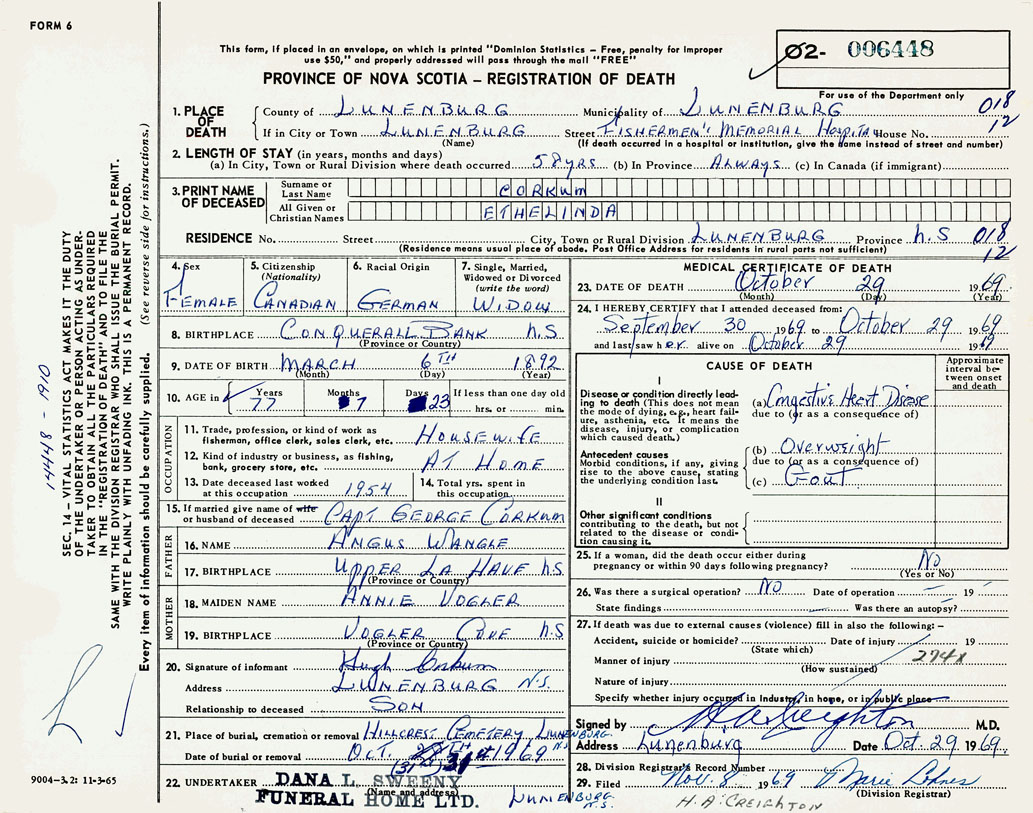 FORM 6
This form, if placed in an envelope, on which is printed "Dominion Statistics – Free, penalty for improper
use $50," and properly addressed will pass through the mail "FREE"
02- 006448
For use of the Department only
PROVINCE OF NOVA SCOTIA – REGISTRATION OF DEATH
018
12
1. PLACE OF DEATH
County of LUNENBURG Municipality of LUNENBURG
If in City or Town LUNENBURG Street FISHERMEN'S MEMORIAL Hospital House No.
(Name) (If death occurred in a hospital or institution, give the name instead of street and number)
2. LENGTH OF STAY (in years, months and days)
(a) In City, Town or Rural Division where death occurred 58 yrs (b) In Province ALWAYS (c) In Canada (if immigrant)
3. PRINT NAME OF DECEASED
Surname or Last Name CORKUM
All Given or Christian Names ETHELINDA
RESIDENCE No. Street City, Town or Rural Division LUNENBURG Province N.S 018
(Residence means usual place of abode. Post Office Address for residents in rural parts not sufficient) 12
4. Sex FEMALE
5. Citizenship (Nationality) CANADIAN
6. Racial Origin GERMAN
7. Single, Married, Widowed or Divorced (write the word) WIDOW
8. BIRTHPLACE CONQUERALL BANK N.S
(Province or Country)
9. DATE OF BIRTH MARCH 6TH 1892
(Month) (Day) (Year)
10. AGE in Years 77 Months 7 Days 23 If less than one day old hrs. or min.
OCCUPATION
11. Trade, profession, or kind of work as fisherman, office clerk, sales clerk, etc. HOUSEWIFE
12. Kind of industry or business, as fishing, bank, grocery store, etc. AT HOME
13. Date deceased last worked at this occupation 1954 14. Total yrs. spent in this occupation
15. If married give name of wife or husband of deceased CAPT GEORGE CORKUM
FATHER
16. NAME ANGUS WANGLE
17. BIRTHPLACE UPPER LA HAVE N.S
(Province or Country)
MOTHER
18. MAIDEN NAME ANNIE VOGLER
19. BIRTHPLACE VOGLER COVE N.S
(Province or Country)
20. Signature of informant Hugh Corkum
Address LUNENBURG N.S.
Relationship to deceased SON
21. Place of burial, cremation or removal HILLCREST CEMETERY LUNENBURG N.S
Date of burial or removal OCT. 31 1969
(31)
22. UNDERTAKER DANA L. SWEENY
(Name and address)
FUNERAL HOME LTD. LUNENBURG N.S.
MEDICAL CERTIFICATE OF DEATH
23. DATE OF DEATH October 29 1969
(Month) (Day) (Year)
24. I HEREBY CERTIFY that I attended deceased from:
September 30 1969 to October 29 1969
and last saw her alive on October 29 1969
CAUSE OF DEATH
Approximate interval between onset and death
I
Disease or condition directly leading to death (This does not mean the mode of dying, e.g., heart failure, asthenia, etc. It means the disease, injury, or complication which caused death.)
(a) Congestive Heart Disease
due to (or as a consequence of)
Antecedent causes
Morbid conditions, if any, giving rise to the above cause, stating the underlying condition last.
(b) Overweight
due to (or as a consequence of)
(c) Gout
II
Other significant conditions
contributing to the death, but not related to the disease or condition causing it.
25. If a woman, did the death occur either during pregnancy or within 90 days following pregnancy? No
(Yes or No)
26. Was there a surgical operation? No Date of operation 19
State findings Was there an autopsy?
27. If death was due to external causes (violence) fill in also the following: –
Accident, suicide or homicide? Date of injury 19
(State which)
Manner of injury 274X
(How sustained)
Nature of injury
Specify whether injury occurred in Industry, in home, or in public place
Signed by H A Creighton M.D.
Address Lunenburg Date Oct. 29 1969.
28. Division Registrar's Record Number
29. Filed Nov. 8 1969 Marie Lohnes
(Division Registrar)
H. A. CREIGHTON
14448 - 1910
SEC. 14 – VITAL STATISTICS ACT MAKES IT THE DUTY
OF THE UNDERTAKER OR PERSON ACTING AS UNDER-
TAKER TO OBTAIN ALL THE PARTICULARS REQUIRED
IN THE "REGISTRATION OF DEATH" AND TO FILE THE
SAME WITH THE DIVISION REGISTRAR WHO SHALL ISSUE THE BURIAL PERMIT.
WRITE PLAINLY WITH UNFADING INK. THIS IS A PERMANENT RECORD.
Every item of information should be carefully supplied. (See reverse side for instructions.)
9004–3.2: 11-3-65